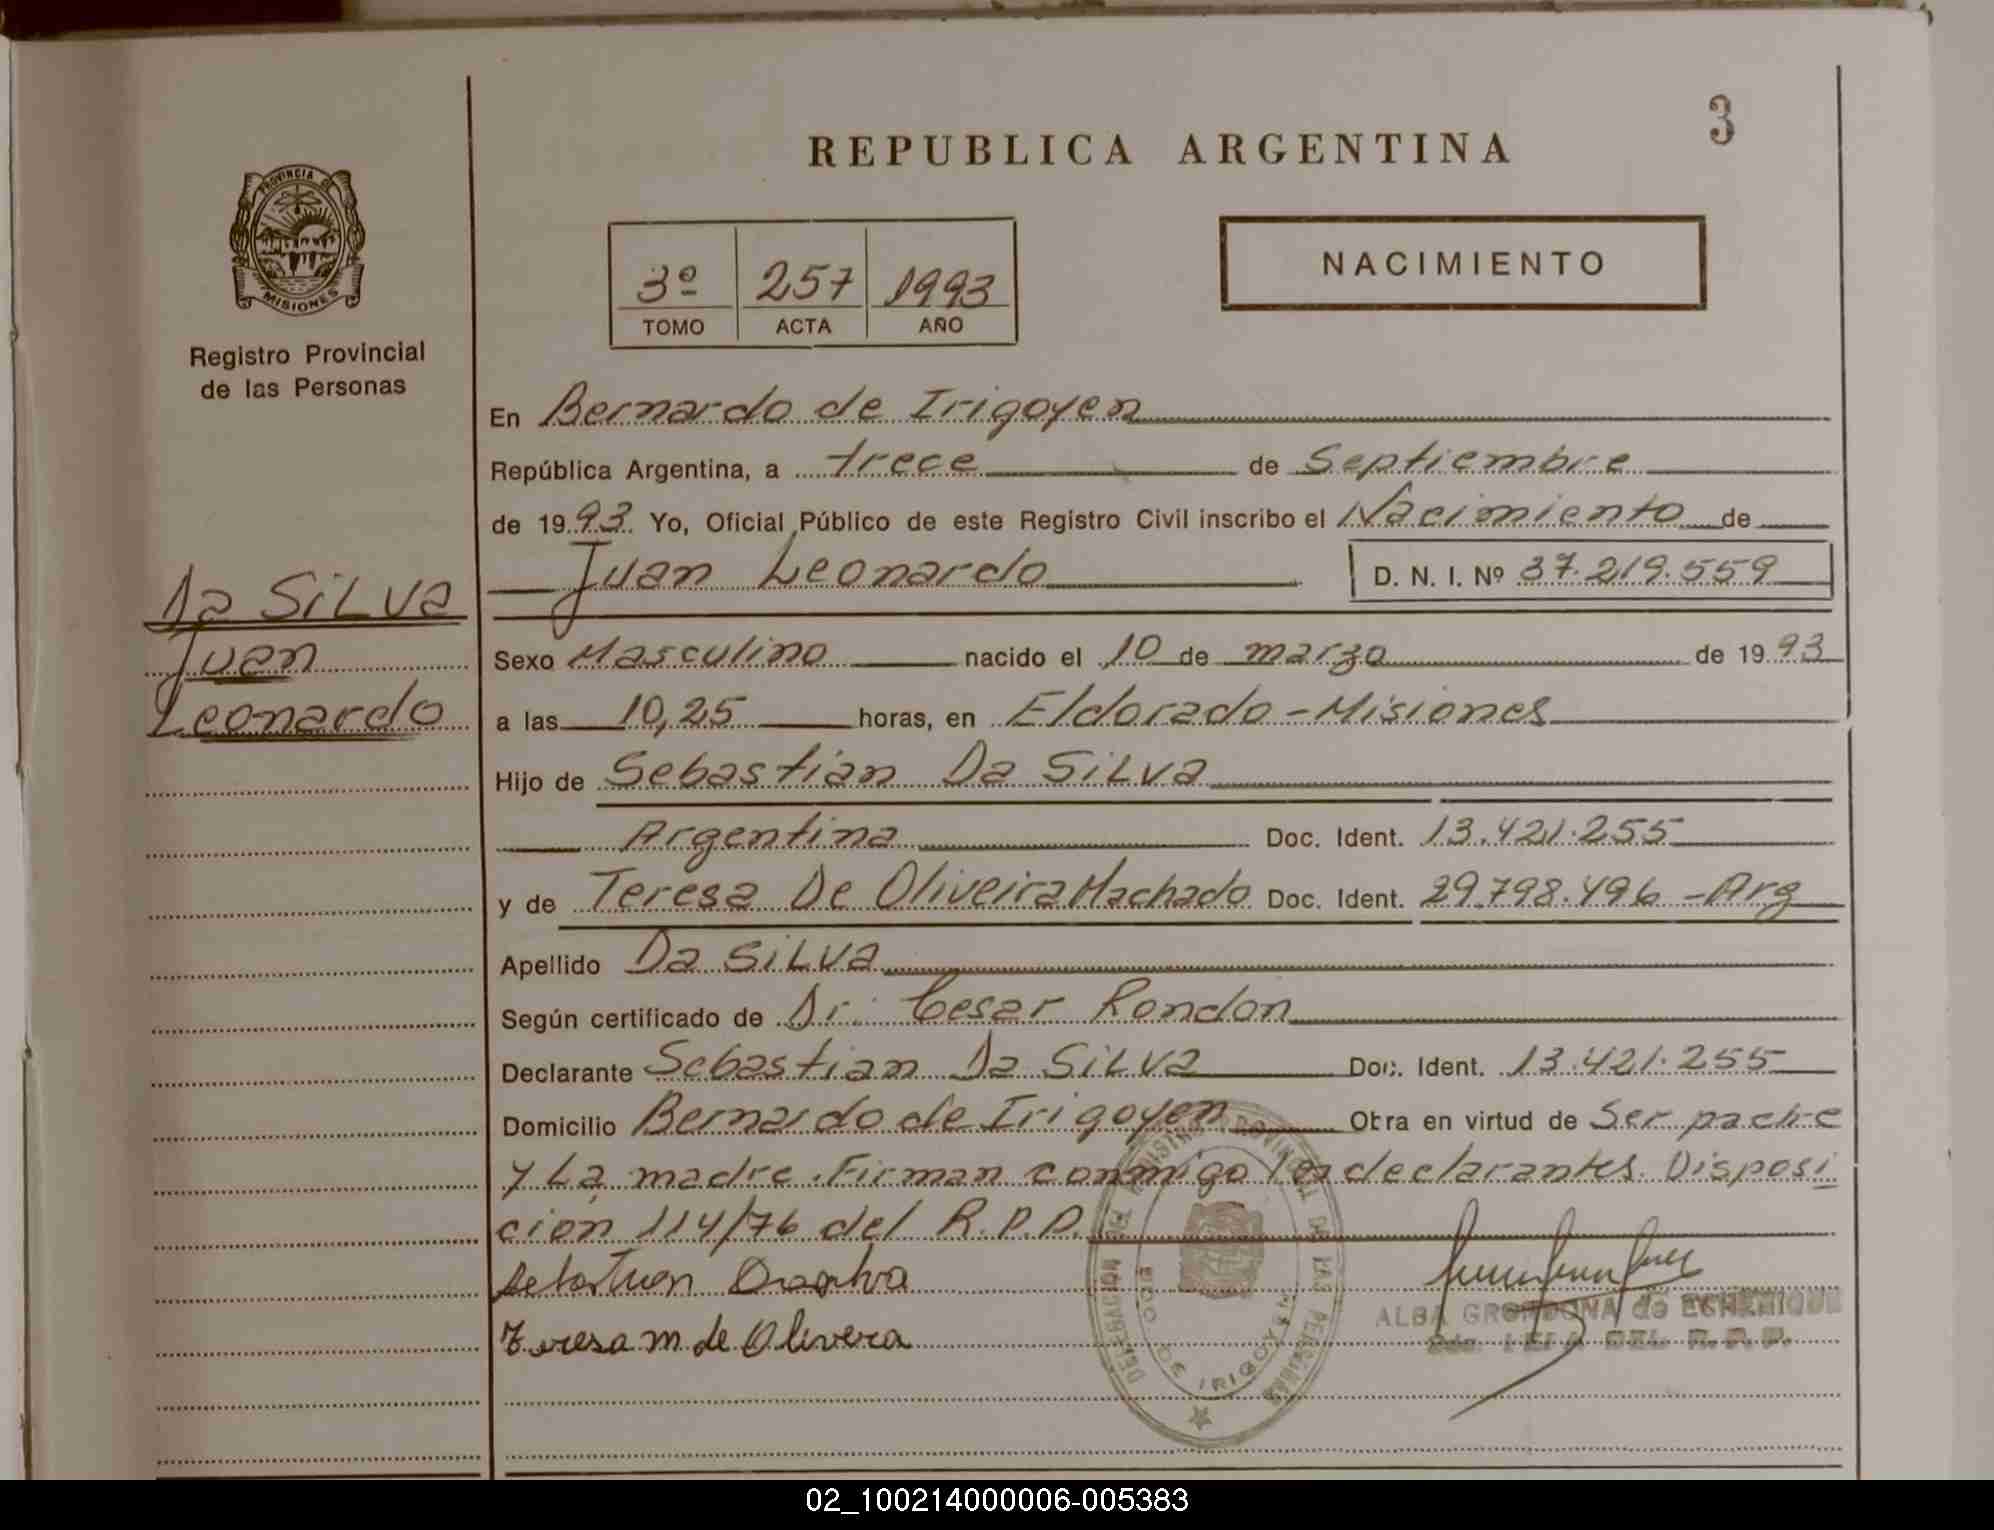 3
REPUBLICA ARGENTINA
PROVINCIA DE
MISIONES
Registro Provincial
de las Personas
3º 257 1993
TOMO ACTA AÑO
NACIMIENTO
En Bernardo de Irigoyen
República Argentina, a trece de Septiembre
de 1993. Yo, Oficial Público de este Registro Civil inscribo el Nacimiento de
Juan Leonardo D. N. I. Nº 37.219.559
Da SiLva
Juan
Leonardo
Sexo Masculino nacido el 10 de marzo de 1993
a las 10,25 horas, en Eldorado - Misiones
Hijo de Sebastián Da Silva
Argentina Doc. Ident. 13.421.255
y de Teresa De Oliveira Machado Doc. Ident. 29.798.496 - Arg
Apellido Da SiLva
Según certificado de Dr. Cesar Rondon
Declarante Sebastian Da SiLva Doc. Ident. 13.421.255
Domicilio Bernardo de Irigoyen Obra en virtud de Ser padre
y La madre. Firman conmigo los declarantes. Disposi
ción 114/76 del R.P.P.
Sebastian Dasilva
Teresa m de Olivera
DELEGACION DEL REGISTRO PROVINCIAL DE LAS PERSONAS
BDO DE IRIGOYEN
ALBA GRONDONA de ECHENIQUE
DEL R.P.P.
02_100214000006-005383